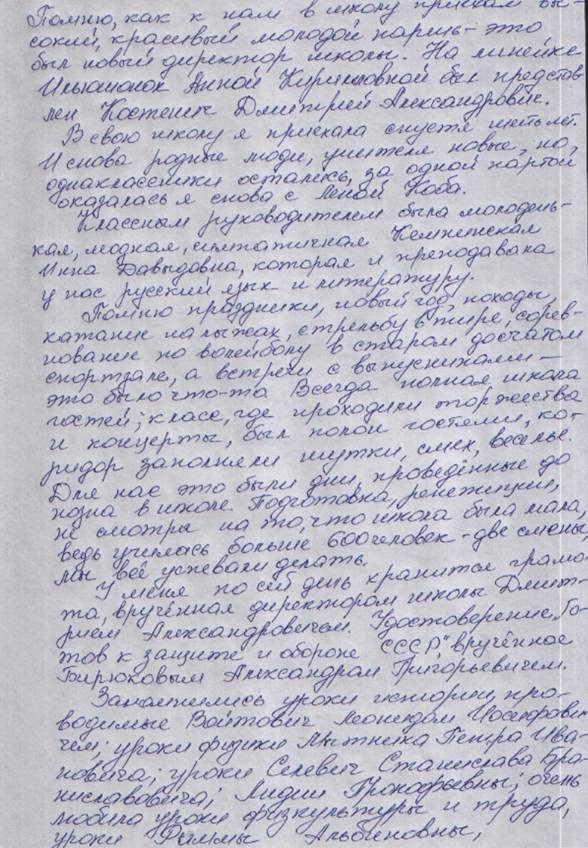 Помню, как к нам в школу приехал вы-
сокий, красивый молодой парень - это
был новый директор школы. На линейке
Анной Кирилловной был представ-
лен Костевич Дмитрий Александрович.
В свою школу я приехала спустя шесть лет.
И снова родные люди, учителя новые, но
одноклассники остались, за одной партой
оказалась я снова с Леной Коба.
Классным руководителем была молодень-
кая, модная, симпатичная
Инна Давыдовна, которая и преподавала
у нас русский язык и литературу.
Помню праздники, новый год, походы,
катание на лыжах, стрельбу в тире, сорев-
нование по волейболу в старом досчатом
спортзале, а встречи с выпускниками -
это было что-то Всегда полная школа
гостей; класс, где проходили торжества
и концерты, был полон гостями, ко-
ридор заполняли шутки, смех, веселье.
Для нас это были дни, проведённые до
поздна в школе. Подготовка, репетиции,
не смотря на то, что школа была мала,
ведь училось больше 600 человек - две смены,
мы всё успевали делать.
У меня по сей день хранится грамо-
та, вручённая директором школы Дмит-
рием Александровичем. Удостоверение „Го-
тов к защите и обороне СССР," вручённое
Бирюковым Александром Григорьевичем.
Запомнились уроки истории, про-
водимые Войтович Леонидом Иосифови-
чем; уроки физики Мытника Петра Ива-
новича; уроки Селевич Станислава Бра-
ниславовича; Лидии Прокофьевны; очень
любила уроки физкультуры и труда,
уроки Риммы Альбиновны,